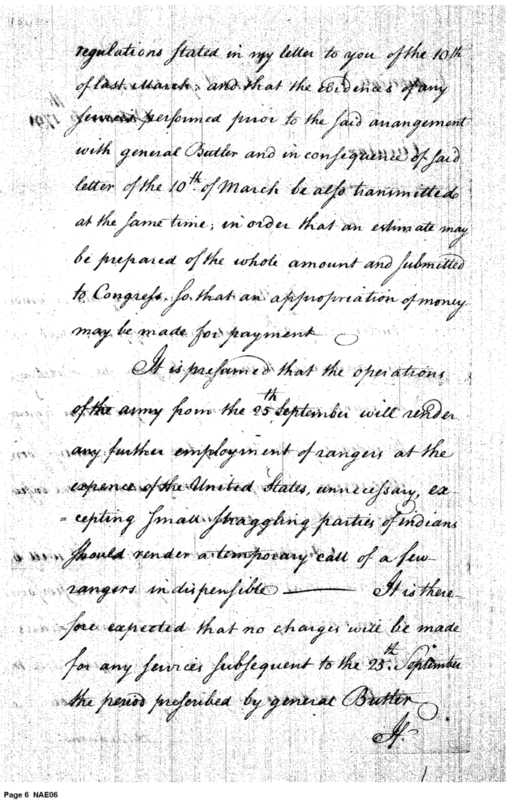 regulations stated in my letter to you of the 10th
of last March; and that the evidences of any
services performed prior to the said arrangement
with general Butler and in consequence of said
letter of the 10th of March be also transmitted
at the same time; in order that an estimate may
be prepared of the whole amount and submitted
to Congress, so that an appropriation of money
may be made for payment
It is presumed that the operations
of the army from the 25th September will render
any further employment of rangers at the
expence of the United States, unnecessary, ex-
=cepting small straggling parties of indians
should render a temporary call of a few
rangers indispensible — It is there
fore expected that no charges will be made
for any services subsequent to the 25th September
the period prescribed by general Butler
If
Page 6 NAE06